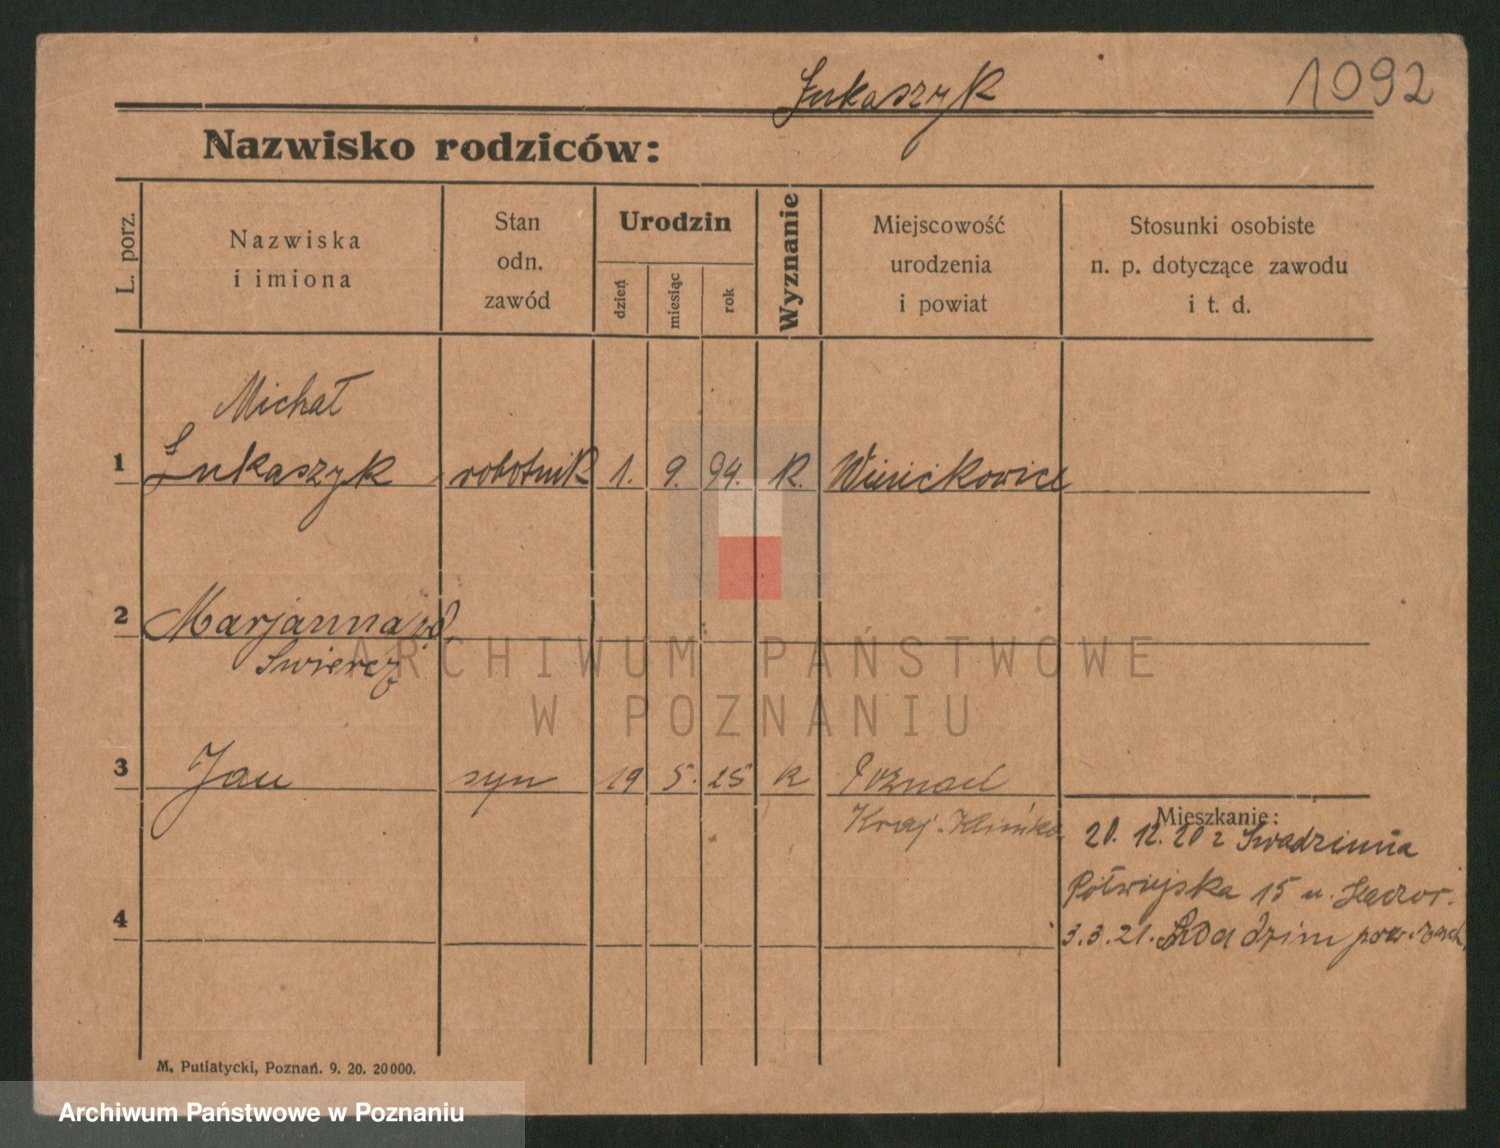 Łukaszyk
1092
Nazwisko rodziców:
L. porz.
Nazwiska
i imiona
Stan
odn.
zawód
Urodzin
dzień
miesiąc
rok
Wyznanie
Miejscowość
urodzenia
i powiat
Stosunki osobiste
n. p. dotyczące zawodu
i t. d.
Michał
1 Łukaszyk robotnik 1. 9. 94. K.
2 Marjanna zd.
Swiercz
3 Jan syn 19 5. 25 k Poznań
Kraj.
Mieszkanie:
20. 12. 20 z
Półwiejska 15 u.
3.3.21.
4
ARCHIWUM PAŃSTWOWE
W POZNANIU
M. Putiatycki, Poznań. 9. 20. 20000.
Archiwum Państwowe w Poznaniu